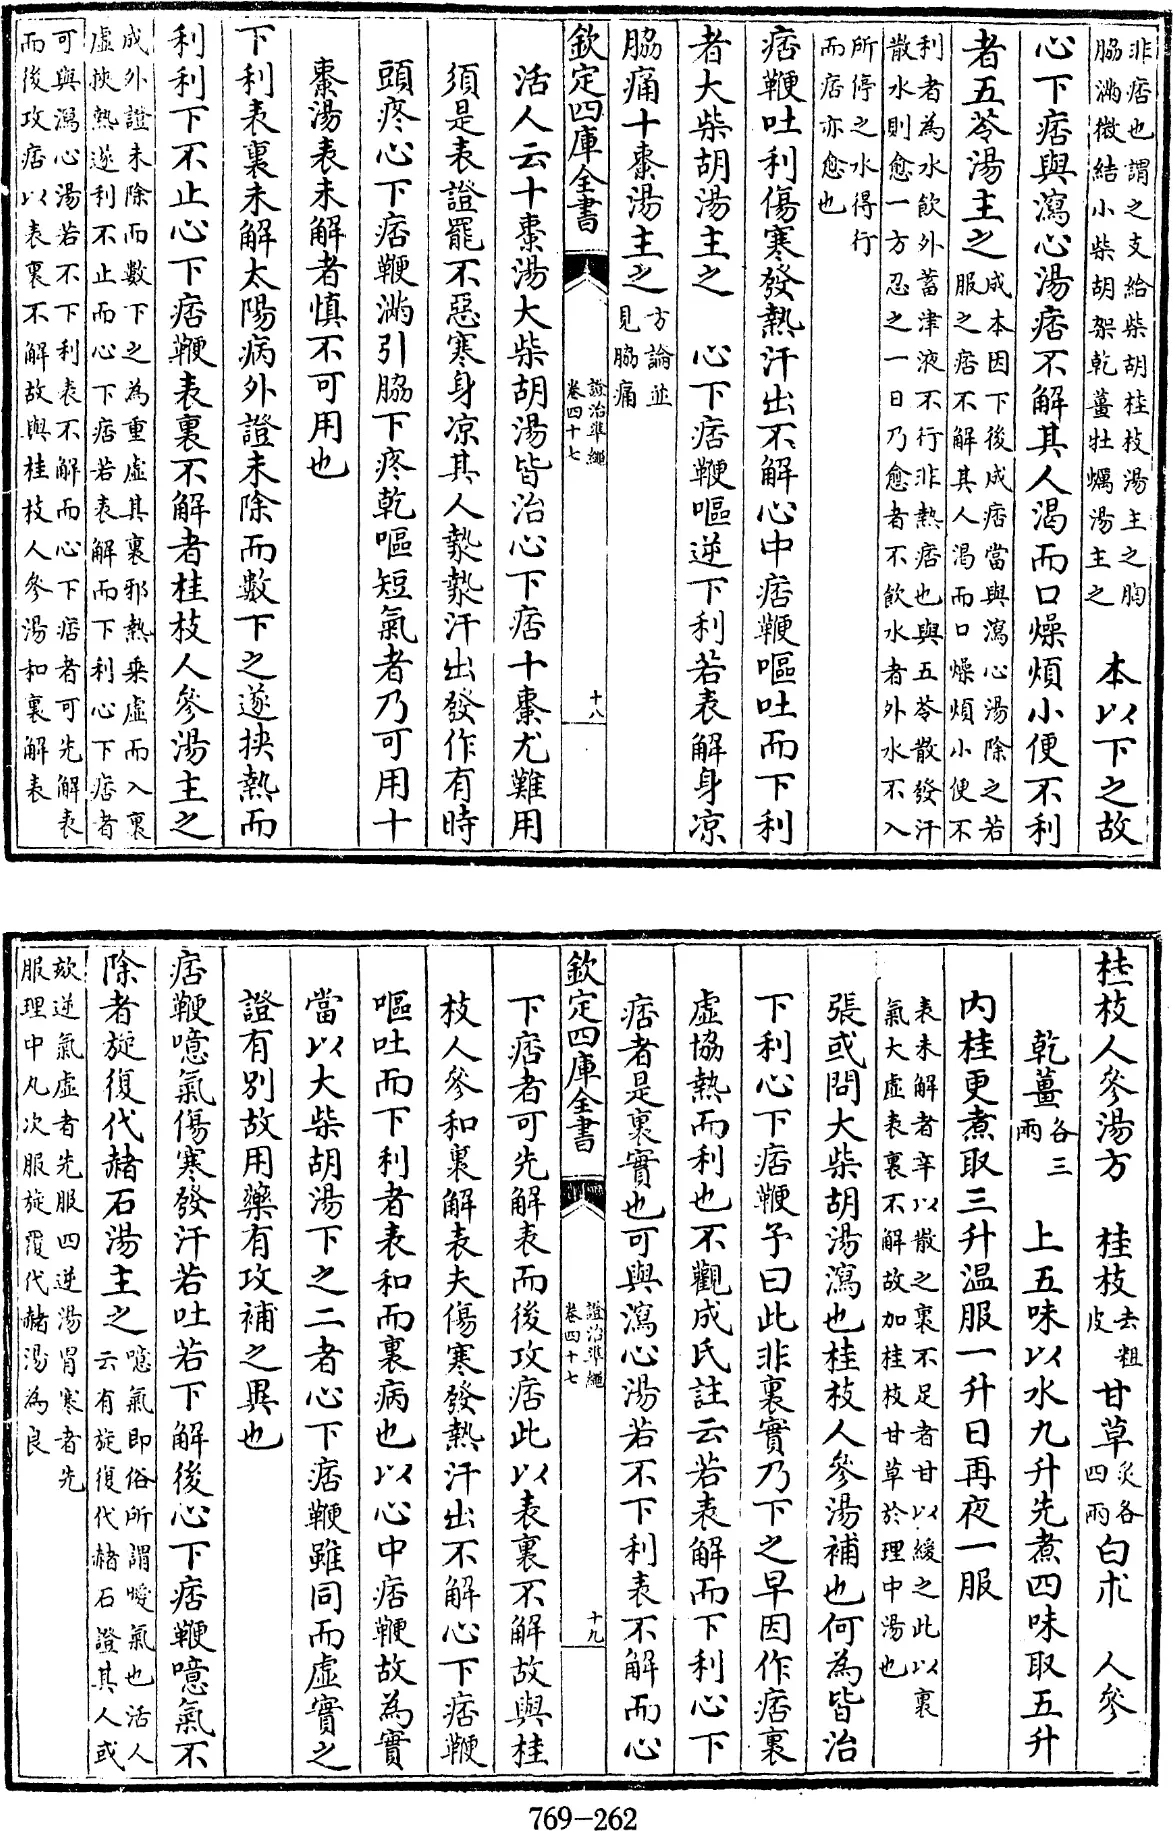 非痞也謂之支給柴胡桂枝湯主之胸
脇滿微結小柴胡架乾薑牡蠣湯主之
本以下之故
心下痞與瀉心湯痞不解其人渴而口燥煩小便不利
者五苓湯主之
成本因下後成痞當與瀉心湯除之若
服之痞不解其人渴而口燥煩小便不
利者為水飲外蓄津液不行非熱痞也與五苓散發汗
散水則愈一方忍之一日乃愈者不飲水者外水不入
所停之水得行
而痞亦愈也
痞鞕吐利傷寒發熱汗出不解心中痞鞕嘔吐而下利
者大柴胡湯主之 心下痞鞕嘔逆下利若表解身凉
脇痛十棗湯主之
方論並
見脇痛
欽定四庫全書
證治準繩
卷四十七
十八
活人云十棗湯大柴胡湯皆治心下痞十棗尤難用
須是表證罷不惡寒身凉其人漐漐汗出發作有時
頭疼心下痞鞕滿引脇下疼乾嘔短氣者乃可用十
棗湯表未解者慎不可用也
下利表裏未解太陽病外證未除而數下之遂挾熱而
利利下不止心下痞鞕表裏不解者桂枝人參湯主之
成外證未除而數下之為重虛其裏邪熱乘虛而入裏
虛挾熱遂利不止而心下痞若表解而下利心下痞者
可與瀉心湯若不下利表不解而心下痞者可先解表
而後攻痞以表裏不解故與桂枝人參湯和裏解表
桂枝人參湯方 桂枝
去粗
皮
甘草
炙各
四兩
白朮 人參
乾薑
各三
兩
上五味以水九升先煮四味取五升
内桂更煮取三升温服一升日再夜一服
表未解者辛以散之裏不足者甘以緩之此以裏
氣大虛表裏不解故加桂枝甘草於理中湯也
張或問大柴胡湯瀉也桂枝人參湯補也何為皆治
下利心下痞鞕予曰此非裏實乃下之早因作痞裏
虛協熱而利也不觀成氏註云若表解而下利心下
痞者是裏實也可與瀉心湯若不下利表不解而心
欽定四庫全書
證治準繩
卷四十七
十九
下痞者可先解表而後攻痞此以表裏不解故與桂
枝人參和裏解表夫傷寒發熱汗出不解心下痞鞕
嘔吐而下利者表和而裏病也以心中痞鞕故為實
當以大柴胡湯下之二者心下痞鞕雖同而虛實之
證有別故用藥有攻補之異也
痞鞕噫氣傷寒發汗若吐若下解後心下痞鞕噫氣不
除者旋復代赭石湯主之
噫氣即俗所謂噯氣也活人
云有旋復代赭石證其人或
欬逆氣虛者先服四逆湯胃寒者先
服理中丸次服旋覆代赭湯為良
769-262